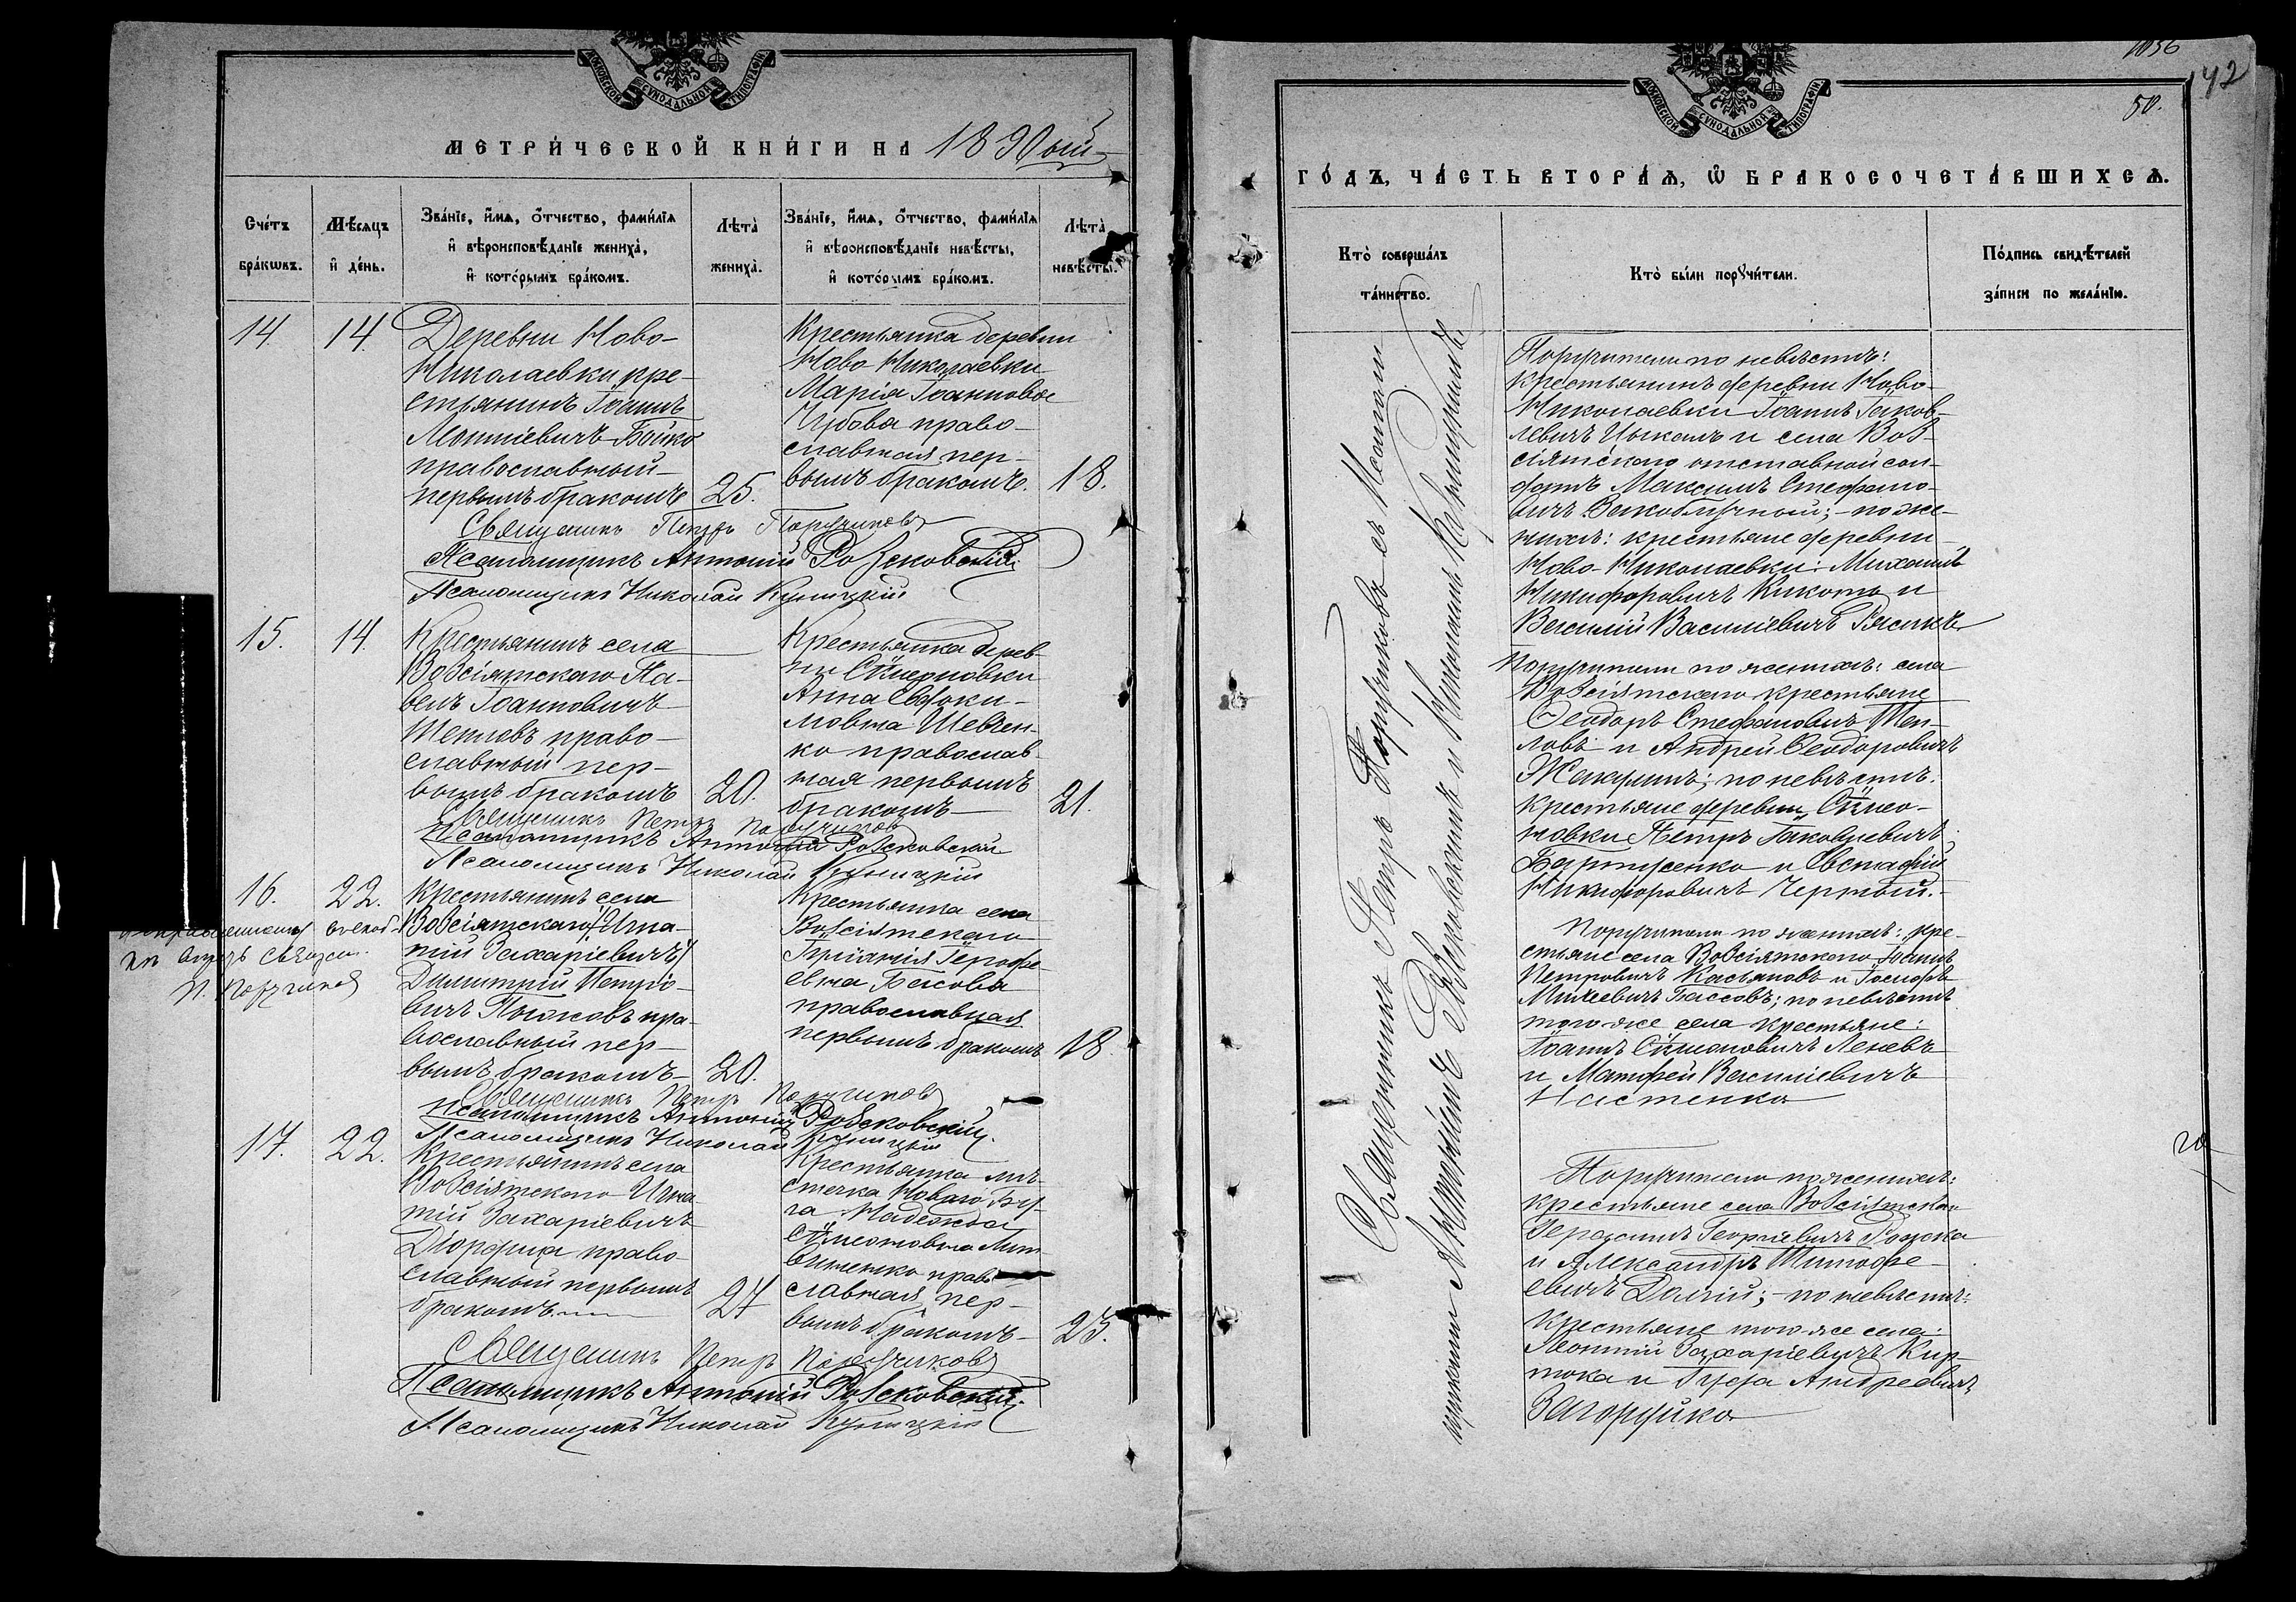 МОСКОВСКОЙ СѴНОДАЛЬНОЙ ТИПОГРАФІИ
МЕТРИ́ЧЕСКОЙ КНИ́ГИ НА 1890ый
Сче́тъ
бра́кωвъ.
Мѣ́сяцъ
и҆ де́нь.
Зва́нїе, и҆́мѧ, ѻ҆́тчество, фами́лїѧ
и҆ вѣроисповѣ́данїе жениха̀,
и҆ кото́рымъ бра́комъ.
Лѣта̀
жениха̀.
Зва́нїе, и҆́мѧ, ѻ҆́тчество, фами́лїѧ
и҆ вѣроисповѣ́данїе невѣ́сты,
и҆ кото́рымъ бра́комъ.
Лѣта̀
невѣ́сты.
14 14.
Деревни Ново-
Николаевки кре-
стьянинъ Іоаннъ
Леонтіевичъ Бойко
православный
первымъ бракомъ 25.
Крестьянка деревни
Ново Николаевки
Марія Іоанновое
Чубова право-
славная пер-
вымъ бракомъ. 18.
Священникъ Петръ Поручиковъ
Псаломщикъ Антоній Розсковскій
Псаломщикъ Николай Куницкій
15. 14.
Крестьянинъ села
Возсіятскаго Па-
велъ Іоанновичъ
право-
славный пер-
вымъ бракомъ 20.
Крестьянка дерев-
ни Сѵмеоновки
Анна Евдоки-
мовна Шевчен-
ко православ-
ная первымъ
бракомъ 21.
Священникъ Петръ Поручиковъ
Псаломщикъ Антоній Розсковскій
Псаломщикъ Николай Куницкій
16. 22.
Крестьянинъ села
Возсіятскаго (Игна-
тій Захаріевичъ)
Димитрій Петро-
вичъ пра-
вославный пер-
вымъ бракомъ 20.
Крестьянка села
Возсіятскаго
Ѳе-
евна Басова
православная
первымъ бракомъ 18.
Священ.
П. Поручиковъ
Священникъ Петръ Поручиковъ
Псаломщикъ Антоній Розсковскій
Псаломщикъ Николай Куницкій
17. 22.
Крестьянинъ села
Возсіятскаго Игна-
тій Захаріевичъ
право-
славный первымъ
бракомъ 27
Крестьянка мѣ-
стечка Новаго Бу-
га Надежда
Сѵмеоновна Лит-
виненко право-
славная пер-
вымъ бракомъ 23.
Священникъ Петръ Поручиковъ
Псаломщикъ Антоній Розсковскій
Псаломщикъ Николай Куницкій
1056
42
50.
МОСКОВСКОЙ СѴНОДАЛЬНОЙ ТИПОГРАФІИ
ГО́ДЪ, ЧА́СТЬ ВТОРА́Ѧ, Ѡ БРАКОСОЧЕТА́ВШИХСѦ.
Кто̀ соверша́лъ
та́инство.
Кто̀ бы́ли порꙋчи́тели.
По́дпись свидѣ́телей
за́писи по жела́нїю.
Священникъ Петръ Поручиковъ съ Псалом-
щиками Антоніемъ Розсковскимъ и Николаемъ Куницкимъ
Поручители по невѣстѣ:
крестьянинъ деревни Ново-
Николаевки Іоаннъ Іаков-
левичъ Цыкалъ и села Воз-
сіятскаго отставной сол-
датъ Максимъ Стефано-
вичъ по же-
нихѣ: крестьяне деревни
Ново-Николаевки: Михаилъ
Никифоровичъ Кикоть и
Василій Васильевичъ
Поручители по женихѣ: села
Возсіятскаго крестьяне
Ѳеодоръ Стефановичъ Теп-
ловъ и Андрей Ѳеодоровичъ
по невѣстѣ:
крестьяне деревни Сѵмео-
новки Петръ Іаковлевичъ
и Евстафій
Никифоровичъ Черный.
Поручители по женихѣ: кре-
стьяне села Возсіятскаго Іоаннъ
Петровичъ Касьяновъ и Іосифъ
Михеевичъ Бассовъ; по невѣстѣ
того-же села крестьяне:
Іоаннъ Сѵмеоновичъ
и Матфей Васильевичъ
Настенко
20
Поручители по женихѣ:
крестьяне села Возсіятскаго
Герасимъ Георгіевичъ
и Александръ Тимофе-
евичъ по невѣстѣ:
Крестьяне того-же села:
Леонтій Захаріевичъ Кир-
тока и Андреевичъ
Загоруйко